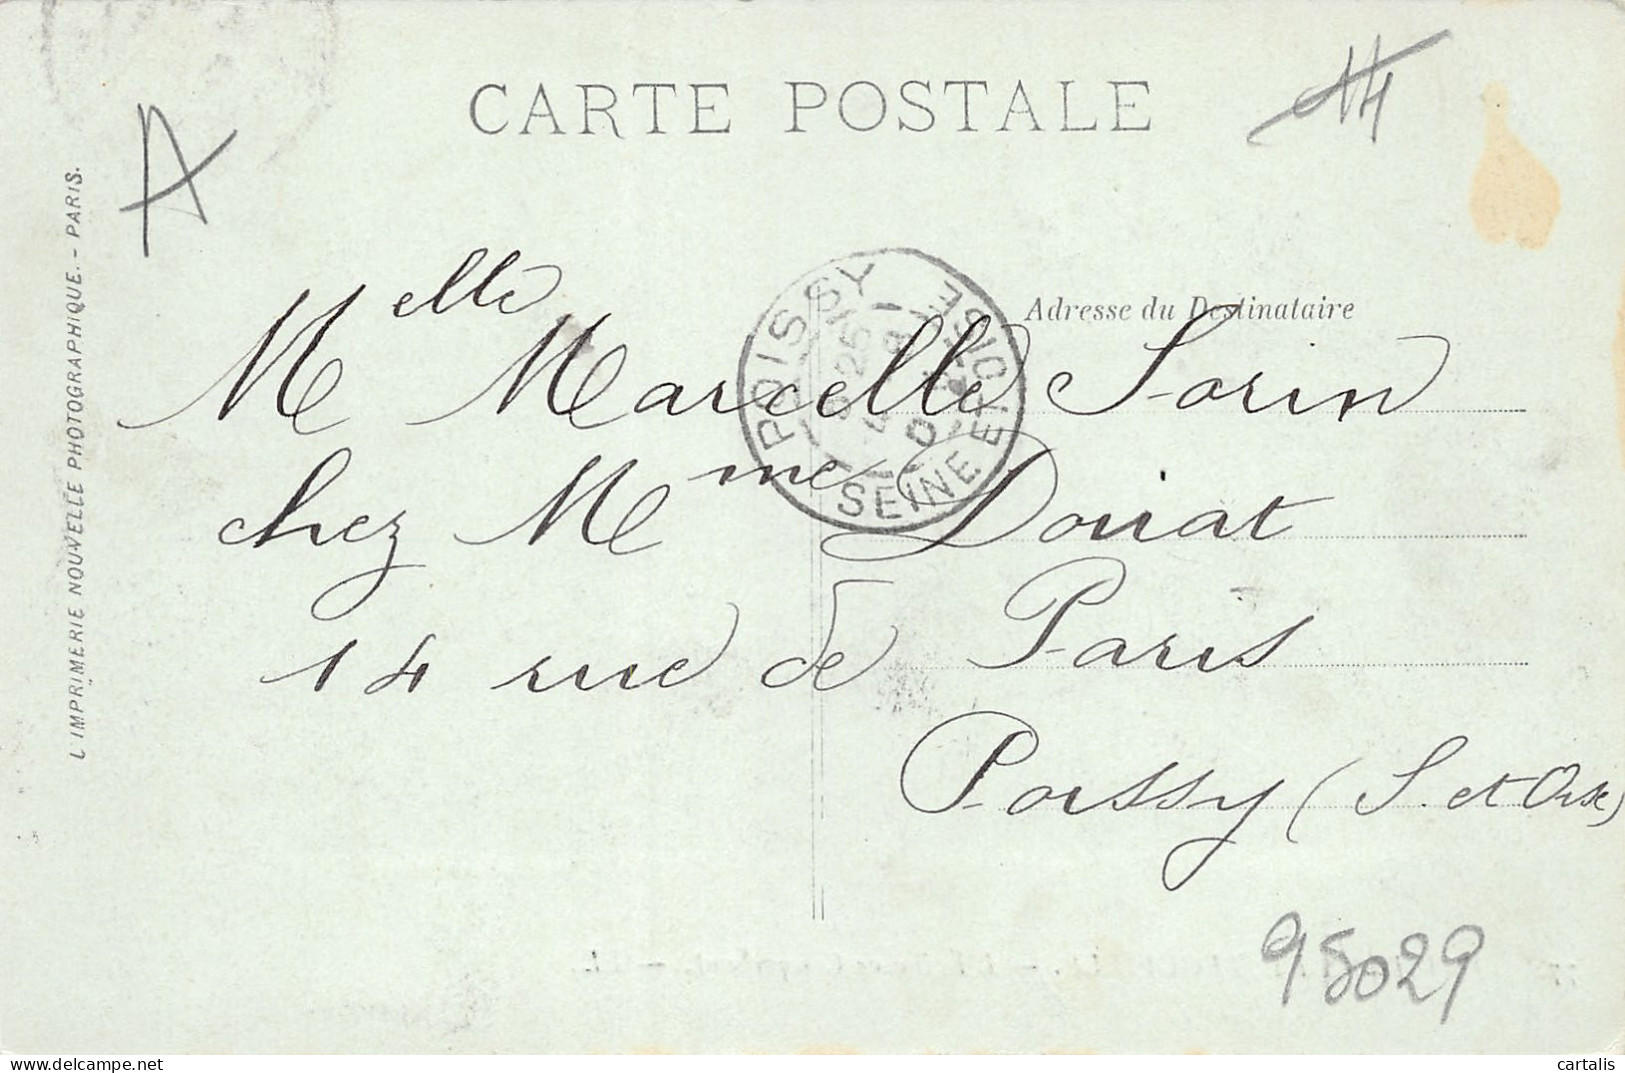 CARTE POSTALE
A
L'IMPRIMERIE NOUVELLE PHOTOGRAPHIQUE. - PARIS.
Adresse du Destinataire
POISSY
SEINE ET OISE
Melle Marcelle Sorin
chez Mme Douat
14 rue de Paris
Poissy (S. et Oise)
95029
cartalis